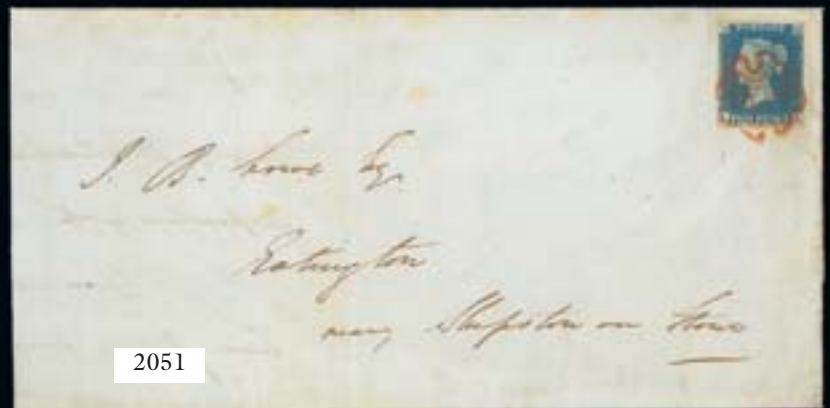 POSTAGE
J. B. Lowe Esq
Eatington
near Shipston on Stour
2051